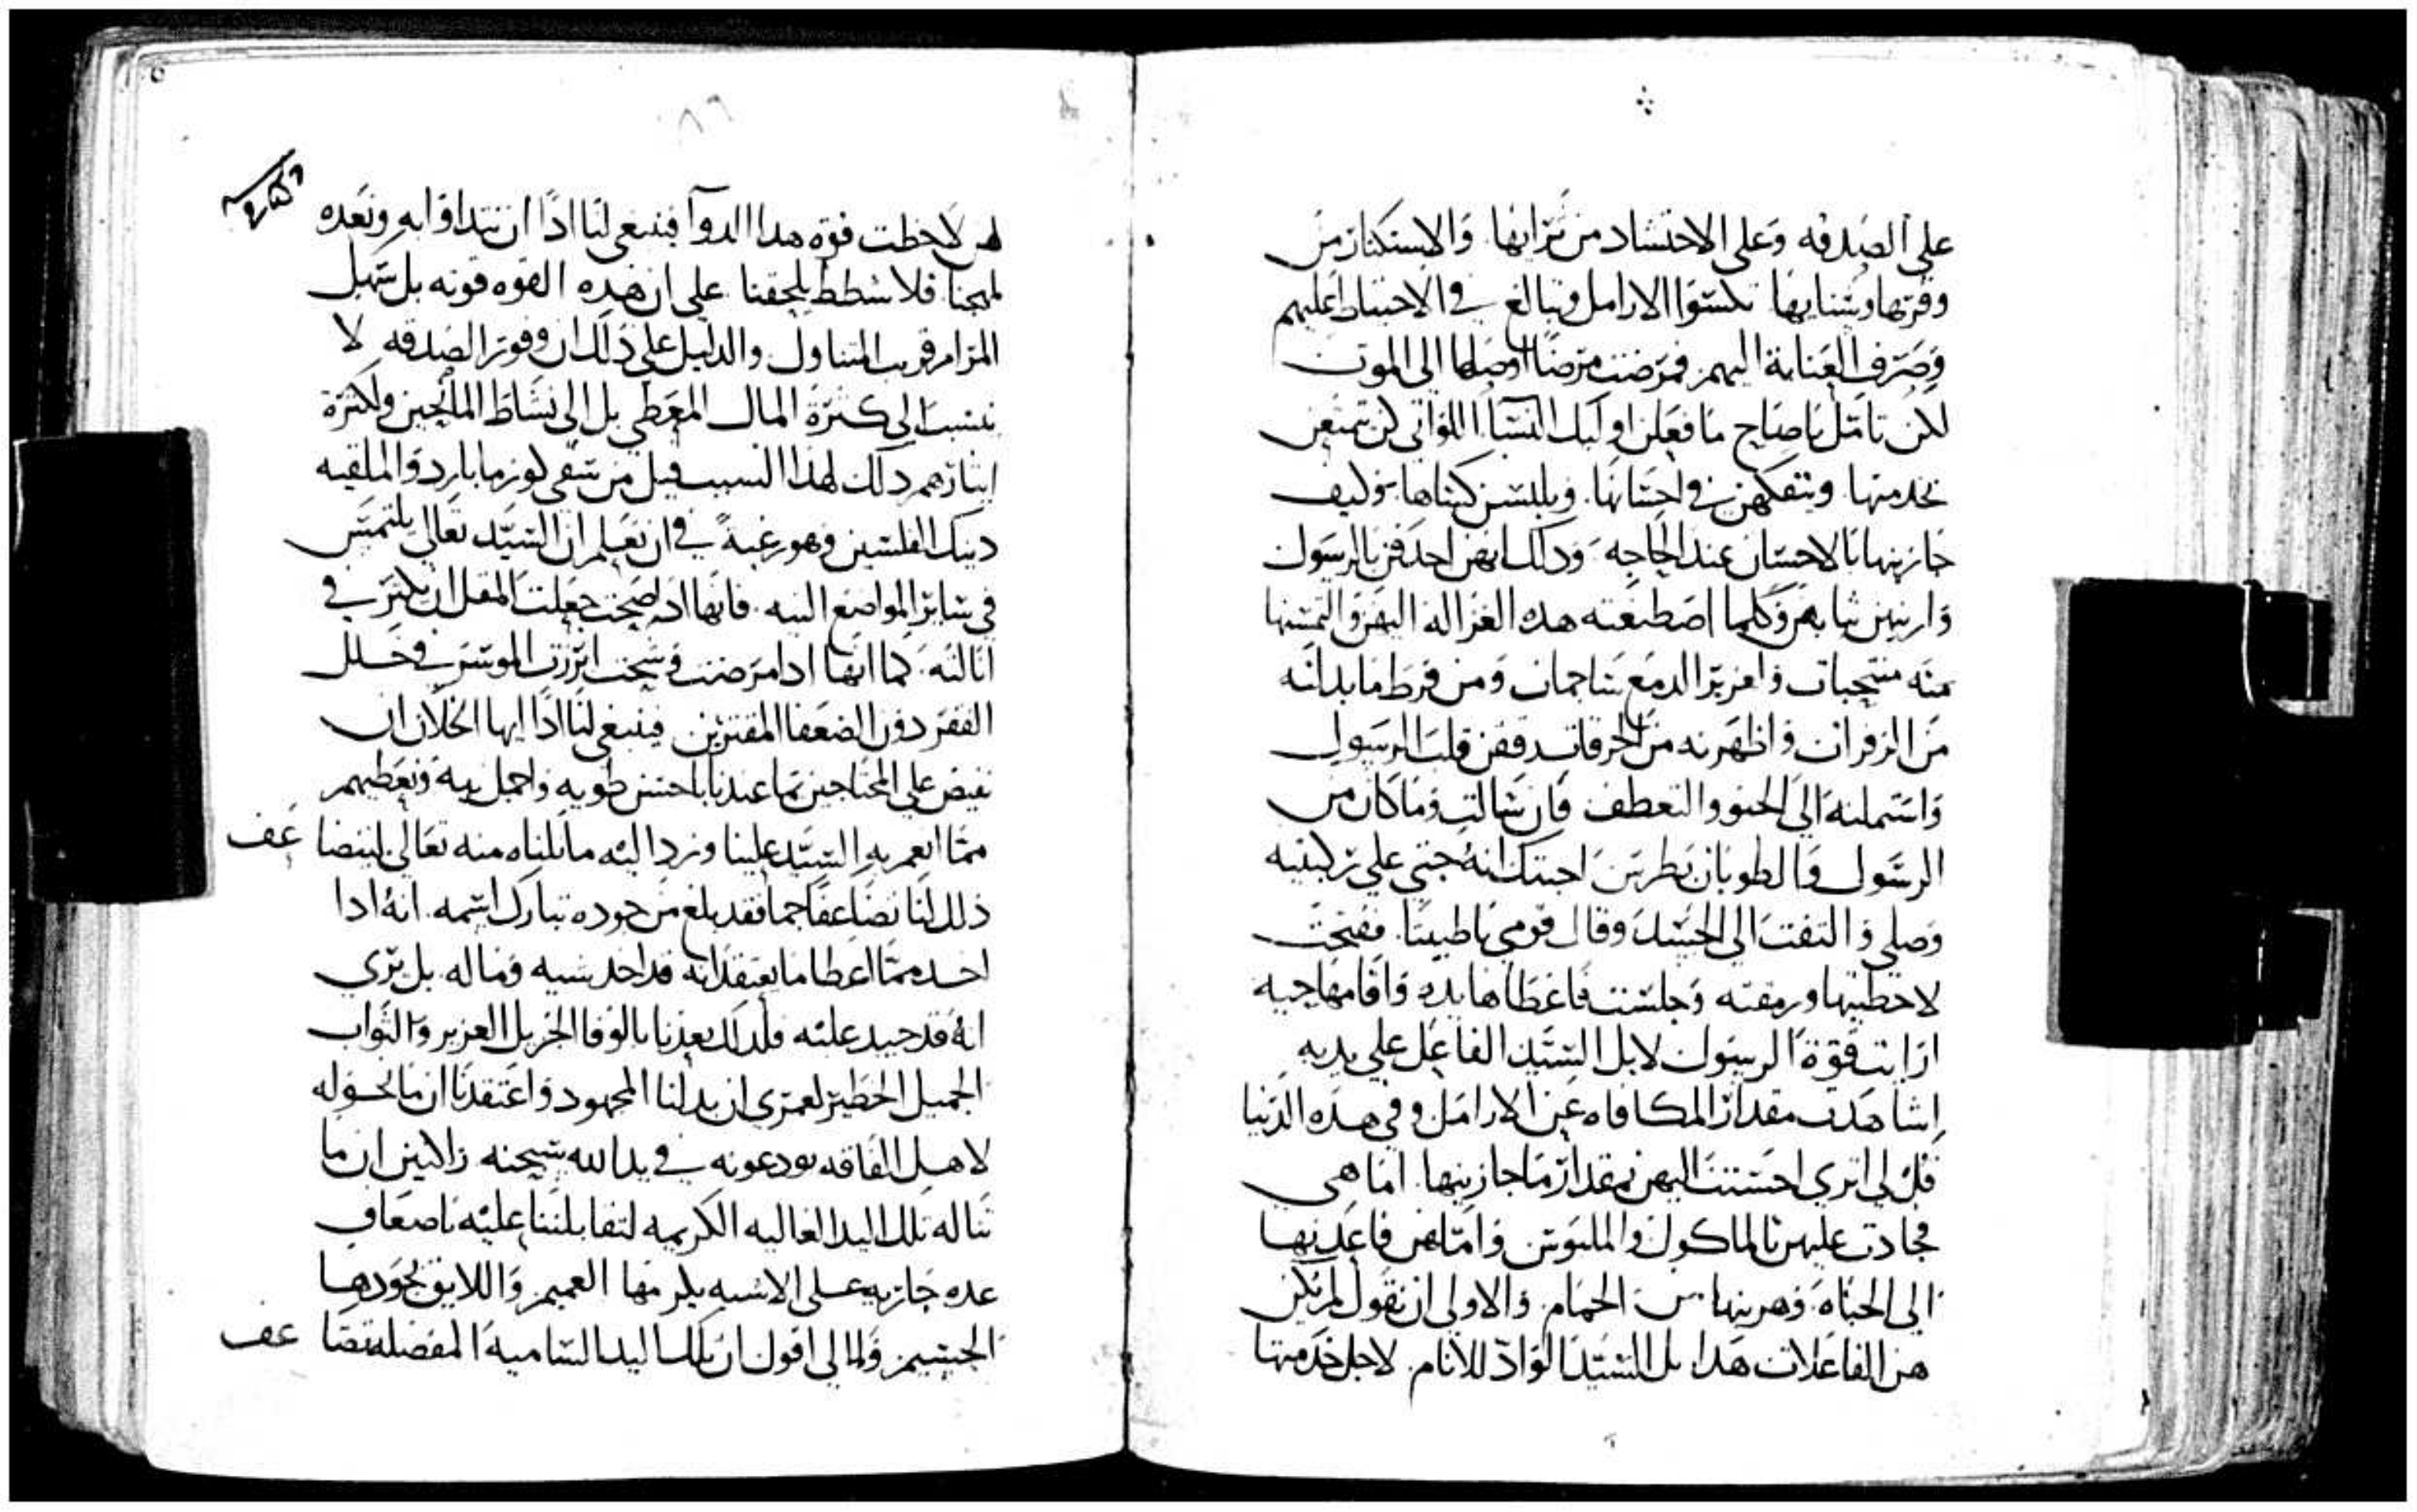 على الصدقه وعلى الاحتشاد من ثراتها والاستكثار من
وفرتها وسنايها تكسوا الارامل وتبالغ في الاحتياط عليهم
وصرف العناية اليهم فمرضت مرضًا اوصلها الى الموت
لكن تامل ياصاح ما فعلن اوليك النسآ اللواتي كن يتمتعن
بخدمتها ويتفكهن في احسانها ويلبسن كساها وكيف
جازينها بالاحسان عند الحاجه وذلك انهن احدقن بالرسول
وارينهن ثيابهن وكلما اصطنعته هذه الغزاله اليهن والتمسنها
منه منتحبات واغزير الدمع ساجمات ومن فرط ما بدانه
من الزفرات واظهرنه من الحرقات رققن قلب الرسول
واستملنه الى الحنو والتعطف فان سالت وما كان من
الرسول والطوبان بطرس اجبتك انه جثى على ركبتيه
وصلى والتفت الى الجسد وقال قومي ياطبيثا ففتحت
لاحظيتها ورمقته وجلست فاعطاها يده واقامها حيه
ارايت قوة الرسول لابل السيد الفاعل على يديه
اشاهدت مقدار المكافاه عن الارامل وفي هذه الدنيا
قل لي اترى احسنت اليهن بمقدار ما جازينها اما هي
فجادت عليهن بالماكول والملبوس وامثالهن فاعدنها
الى الحياه وهربنها من الحمام والاولى ان نقول لم يكن
هن الفاعلات هذا بل السيد الواد للانام لاجل خدمتها
لهن لاحظت قوة هذا الدوآ فينبغي لنا اذًا ان نتداوا به ونعده
لمهجنا فلا شطط يلحقنا على ان هذه القوه قوته بل سهل
المرام قريب المتناول والدليل على ذلك ان وفور الصدقه لا
ينسب الى كثرة المال المعطي بل الى نشاط المانحين ولكثرة
ايثارهم ذلك لهذا السبب قيل من سقى كوز ما بارد والملقيه
دينك الفلسين وهو رغبة في ان تعلم ان السيد تعالى يلتمس
في ساير المواضع النيه فانها اذا صحت جعلت المقل ان يكثر في
انالته كما انها اذا مرضت وشحت ابرزت الموسر في حلل
الفقر دون الضعفا المقترين فينبغي لنا اذًا ايها الخلان ان
نفيض على المحتاجين مما عندنا باحسن طويه واجمل نية ونعطيهم
مما انعم به السيد علينا ونرد اليه ما نلناه منه تعالى ليتضا عف
ذلك لنا تضاعفًا جما فقد بلغ من جوده تبارك اسمه انه اذا
اخذ مما اعطا ما يعتقد انه قد اخذ نسيه وماله بل يرى
انه قد جيد عليه فلذلك يعدنا بالوفا الجزيل العزيز والثواب
الجميل الخطير لعمري ان بدلنا المجهود واعتقدنا ان ما نخوله
لاهل الفاقه نودعونه في يد الله سبحنه زاكنين ان ما
تناله تلك اليد العاليه الكريمه لتقابلننا عليه باضعاف
عده جازيه على الاشبه بكرمها العميم واللايق بجودها
الجسيم ولما لي اقول ان تلك اليد الساميه المفضله تتضا عف